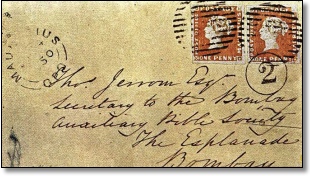 MAURITIUS
ONE PENNY ONE PENNY
2
Thos Jerrom Esq.
Secretary to the Bombay
Auxiliary Bible Society
The Esplanade
Bombay